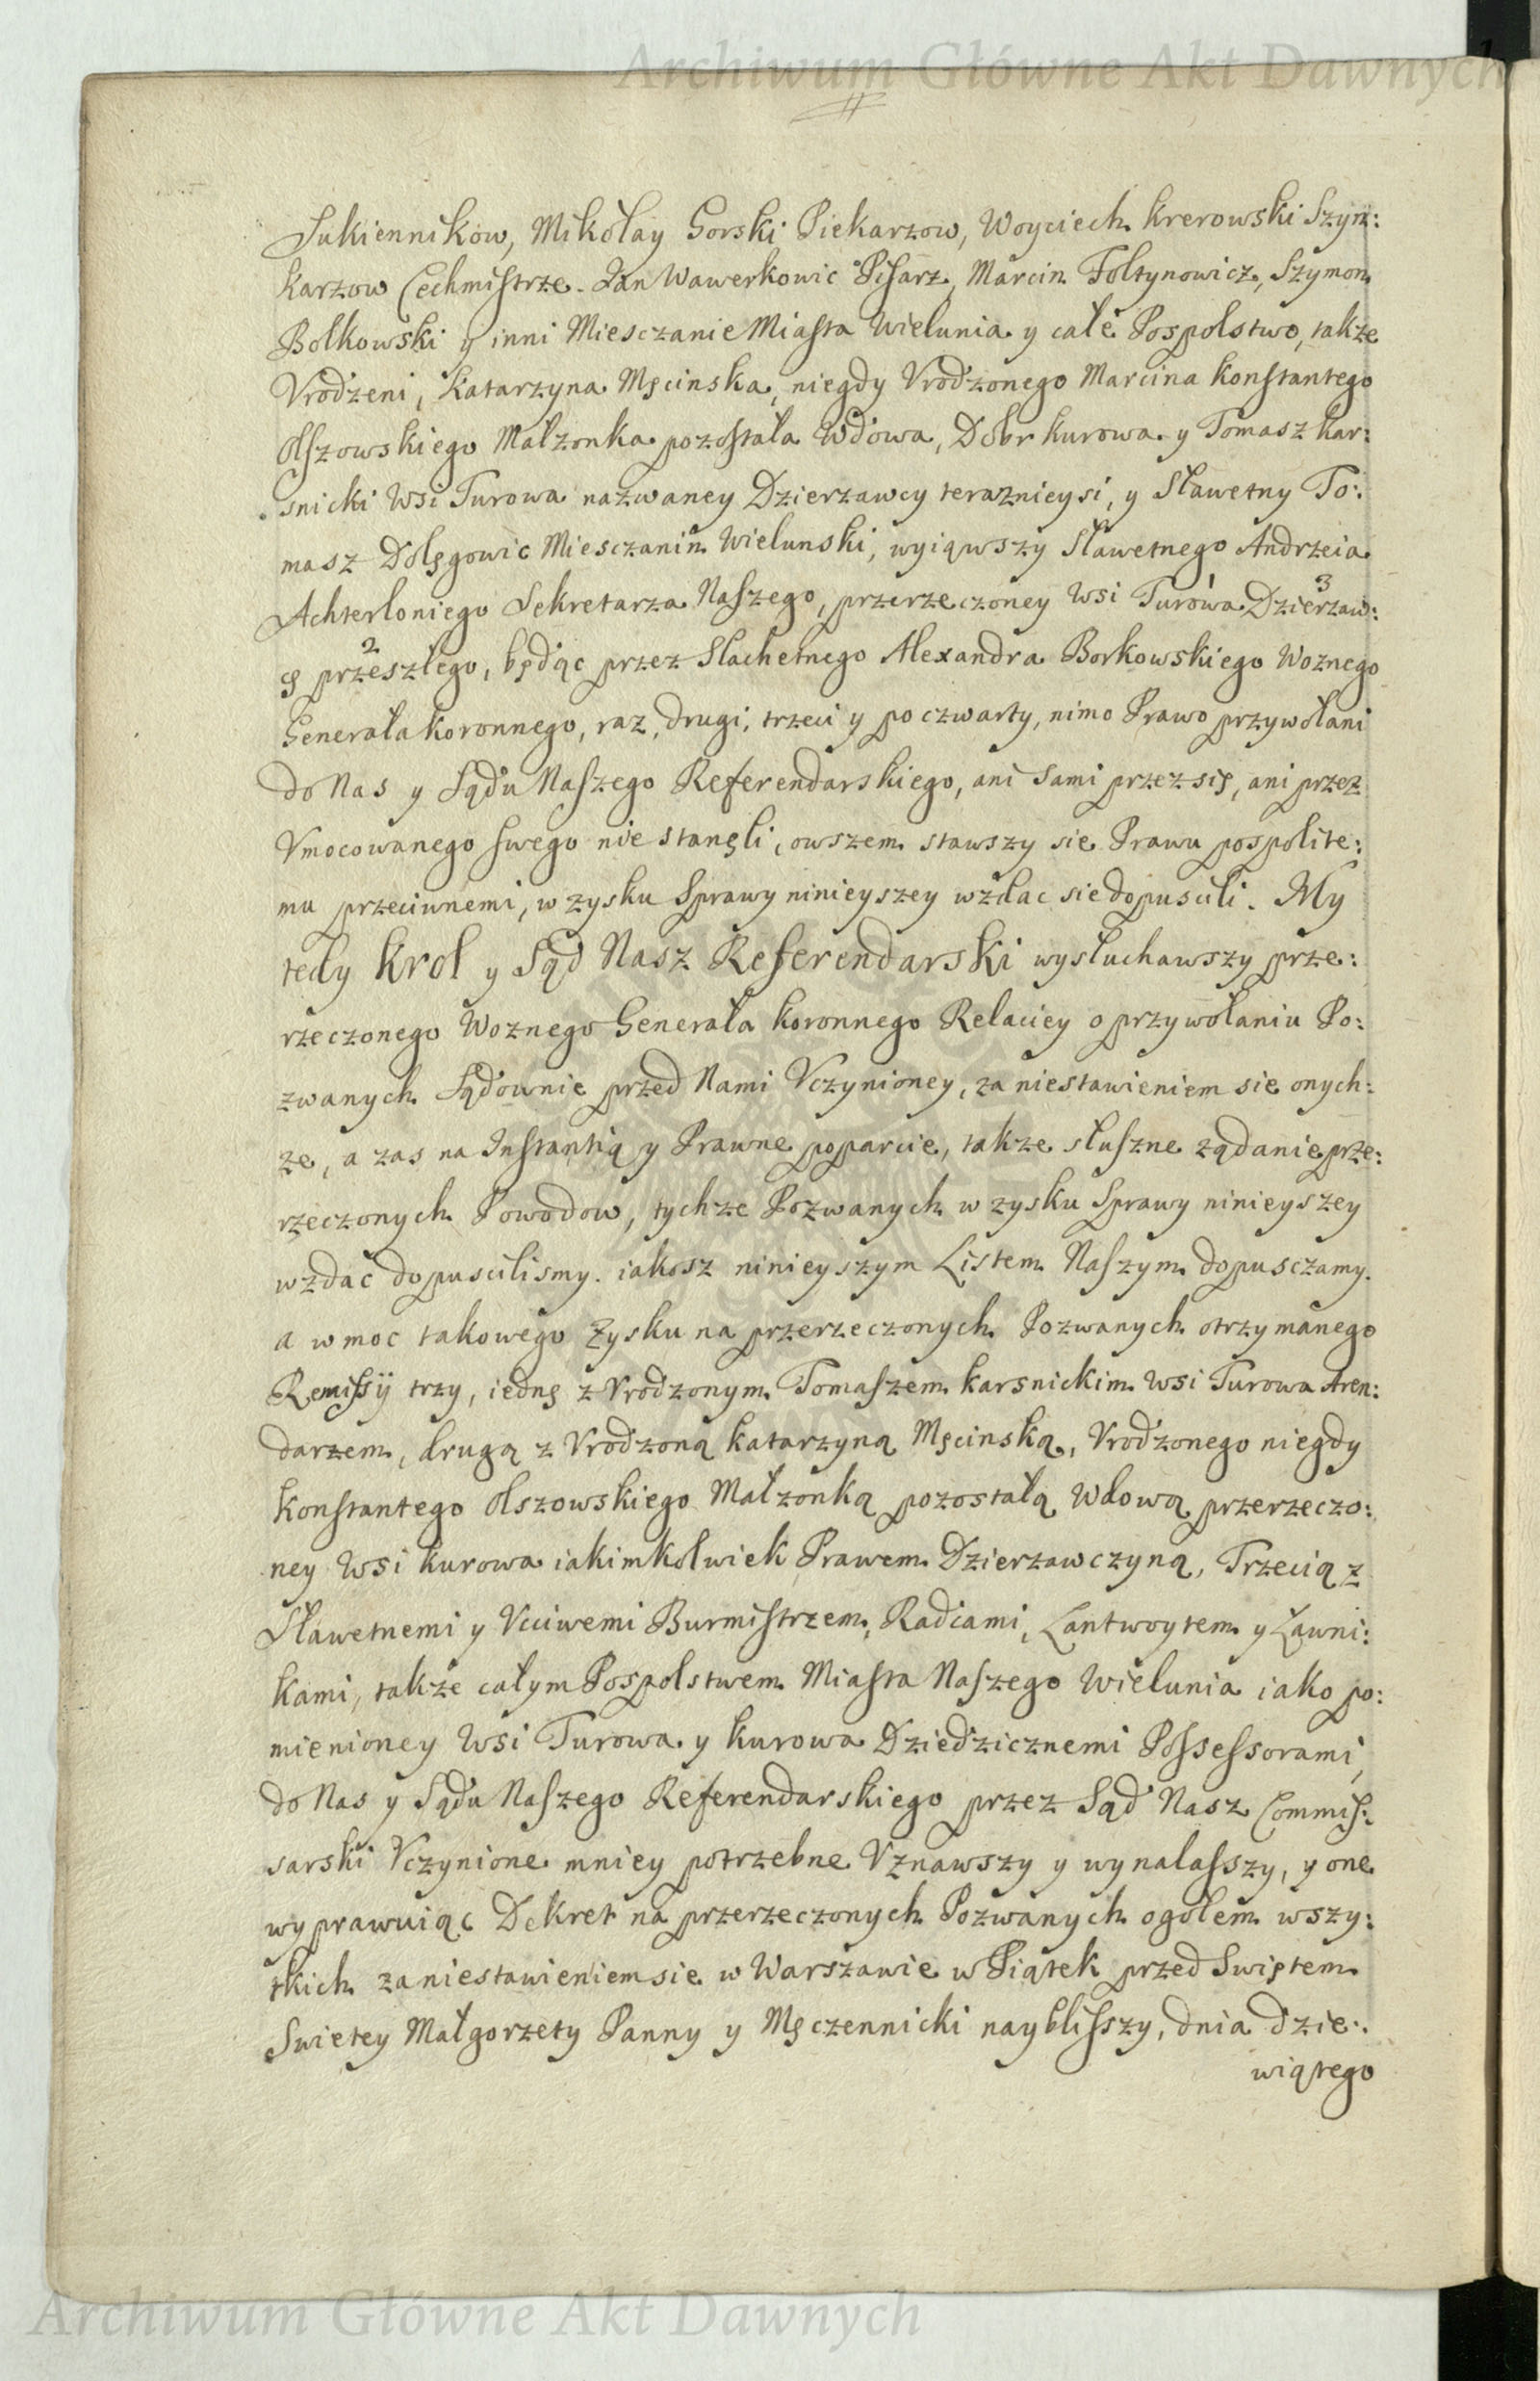 Archiwum Główne Akt Dawnych
Sukiennikow, Mikołay Gorski Piekarzow, Woyciech Krerowski Szyn:
karzow Cechmistrze. Jan Wawerkowic Pisarz, Marcin Foltynowicz, Szymon
Bolkowski y inni Miesczanie Miasta Wielunia y całe Pospolstwo, takze
Vrodzeni, Katarzyna Męcinska, niegdy Vrodzonego Marcina Konstantego
Olszowskiego Małzonka pozostała Wdowa, Dobr Kurowa y Tomasz Kar:
snicki Wsi Turowa nazwaney Dzierzawcy teraznieysi, y Sławetny To:
masz Dolęgowic Miesczanin Wielunski, wyiąwszy Sławetnego Andrzeia
Achterloniego Sekretarza Naszego, przerzeczoney Wsi Turowa 1 Dzierzaw: 3
cę przeszłego 2, będąc przez Slachetnego Alexandra Borkowskiego Woznego
Generała Koronnego, raz, drugi, trzeci y po czwarty, nimo Prawo przywołani
do Nas y Sądu Naszego Referendarskiego, ani sami przez się, ani przez
Vmocowanego swego nie stanęli, owszem stawszy sie Prawu pospolite:
mu przeciwnemi, w zysku Sprawy ninieyszey wzdac sie dopuscili. My
tedy Krol y Sąd Nasz Referendarski wysłuchawszy prze:
rzeczonego Woznego Generała Koronnego Relaciey o przywołaniu Po:
zwanych Sądownie przed Nami Vczynioney, za niestawieniem sie onych:
ze, a zas na Instantią y Prawne poparcie, takze słuszne ządanie prze:
rzeczonych Powodow, tychze Pozwanych w zysku Sprawy ninieyszey
wzdac dopuscilismy. iakosz ninieyszym Listem Naszym dopusczamy.
a w moc takowego Zysku na przerzeczonych Pozwanych otrzymanego
Remissÿ trzy, iednę z Vrodzonym Tomaszem Karsnickim Wsi Turowa Aren:
darzem, drugą z Vrodzoną Katarzyną Męcinską, Vrodzonego niegdy
Konstantego Olszowskiego Małzonką pozostałą Wdową przerzeczo:
ney Wsi Kurowa iakimkolwiek Prawem Dzierzawczyną, Trzecią z
Sławetnemi y Vcciwemi Burmistrzem, Radcami, Lantwoytem y Ławni:
kami, takze całym Pospolstwem Miasta Naszego Wielunia iako po:
mienioney Wsi Turowa y Kurowa Dziedzicznemi Possessorami,
do Nas y Sądu Naszego Referendarskiego przez Sąd Nasz Commis:
sarski Vczynione mniey potrzebne Vznawszy y wynalaszszy, y one
wyprawuiąc Dekret na przerzeczonych Pozwanych ogołem wszy:
tkich za niestawieniem sie w Warszawie w Piątek przed Swiętem
Swietey Małgorzety Panny y Męczennicki nayblisszy, dnia dzie:
wiątego
Archiwum Główne Akt Dawnych